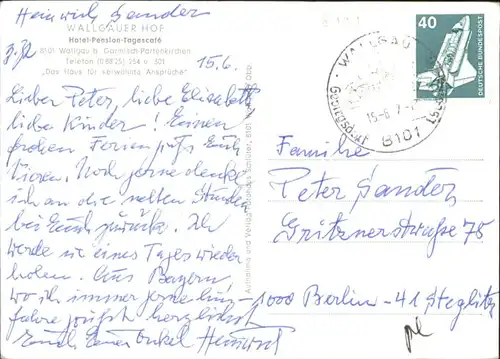 Heinrich Sander
WALLGAUER HOF
Hotel-Pension-Tagescafé
8101 Wallgau b. Garmisch-Partenkirchen
Telefon (0 88 25) 254 u. 301
"Das Haus für verwöhnte Ansprüche"
15.6.
Lieber Peter, liebe Elisabeth
liebe Kinder! Einen
frohen Feriengruß Euch
Noch gerne denke
ich an die netten Stunden
bei Euch zurück. Ich
werde sie eines Tages wieder
holen. Aus Bayern,
wo ich immer gerne hin-
fahre grüßt herzlichst
Euch Euer Onkel Heinrich
40
DEUTSCHE BUNDESPOST
WALLGAU
15.-6.7
8101
Familie
Peter Sander
Gritznerstraße 75
1000 Berlin - 41 Steglitz